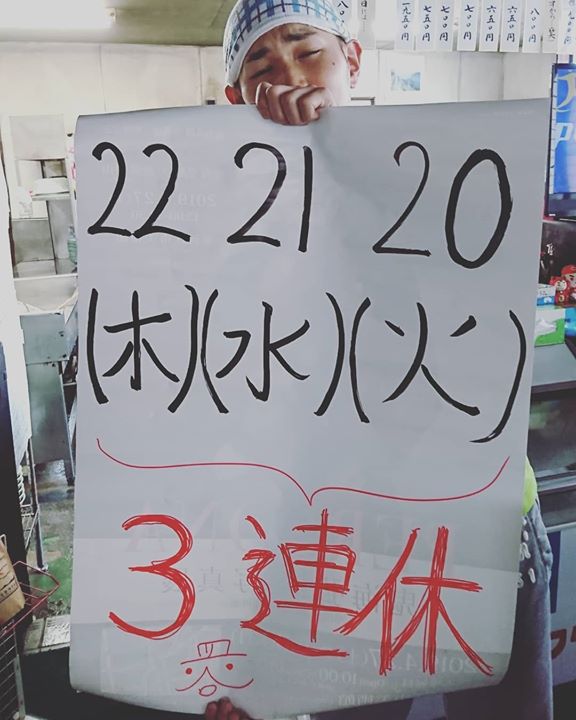 22 21 20
(木)(水)(火)
3連休